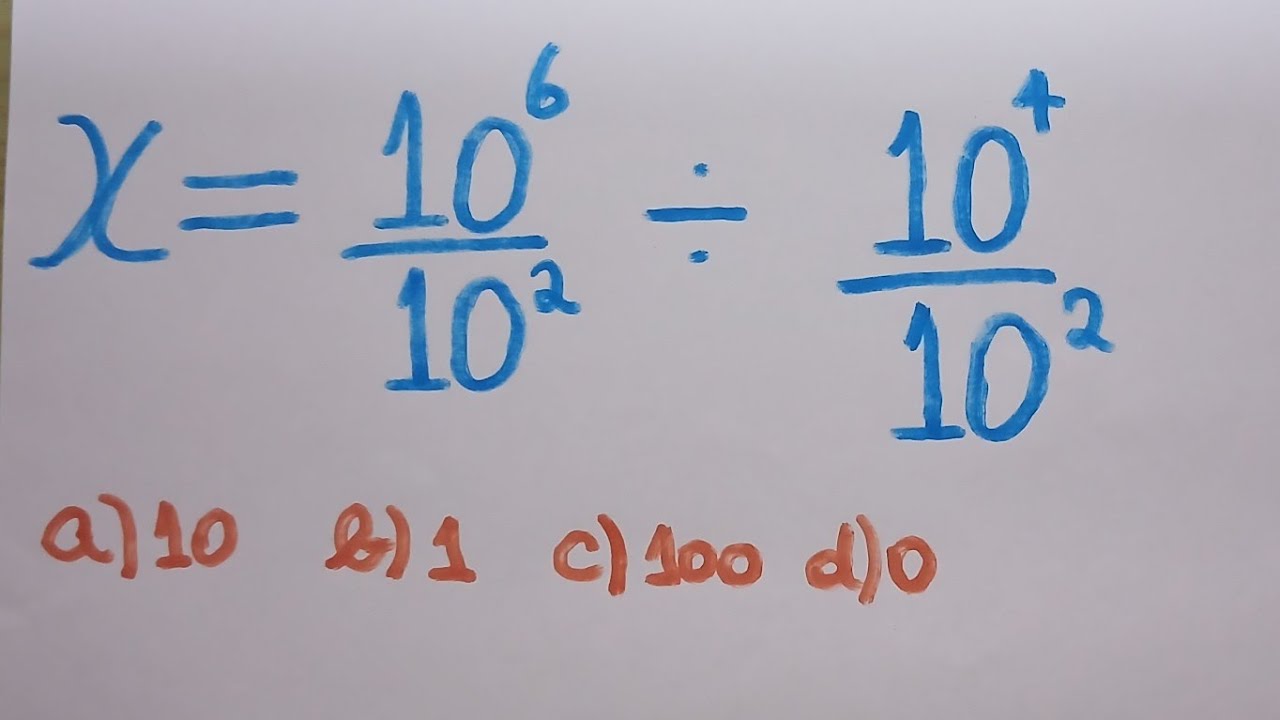 x = 10⁶/10² ÷ 10⁴/10²
a) 10 b) 1 c) 100 d) 0